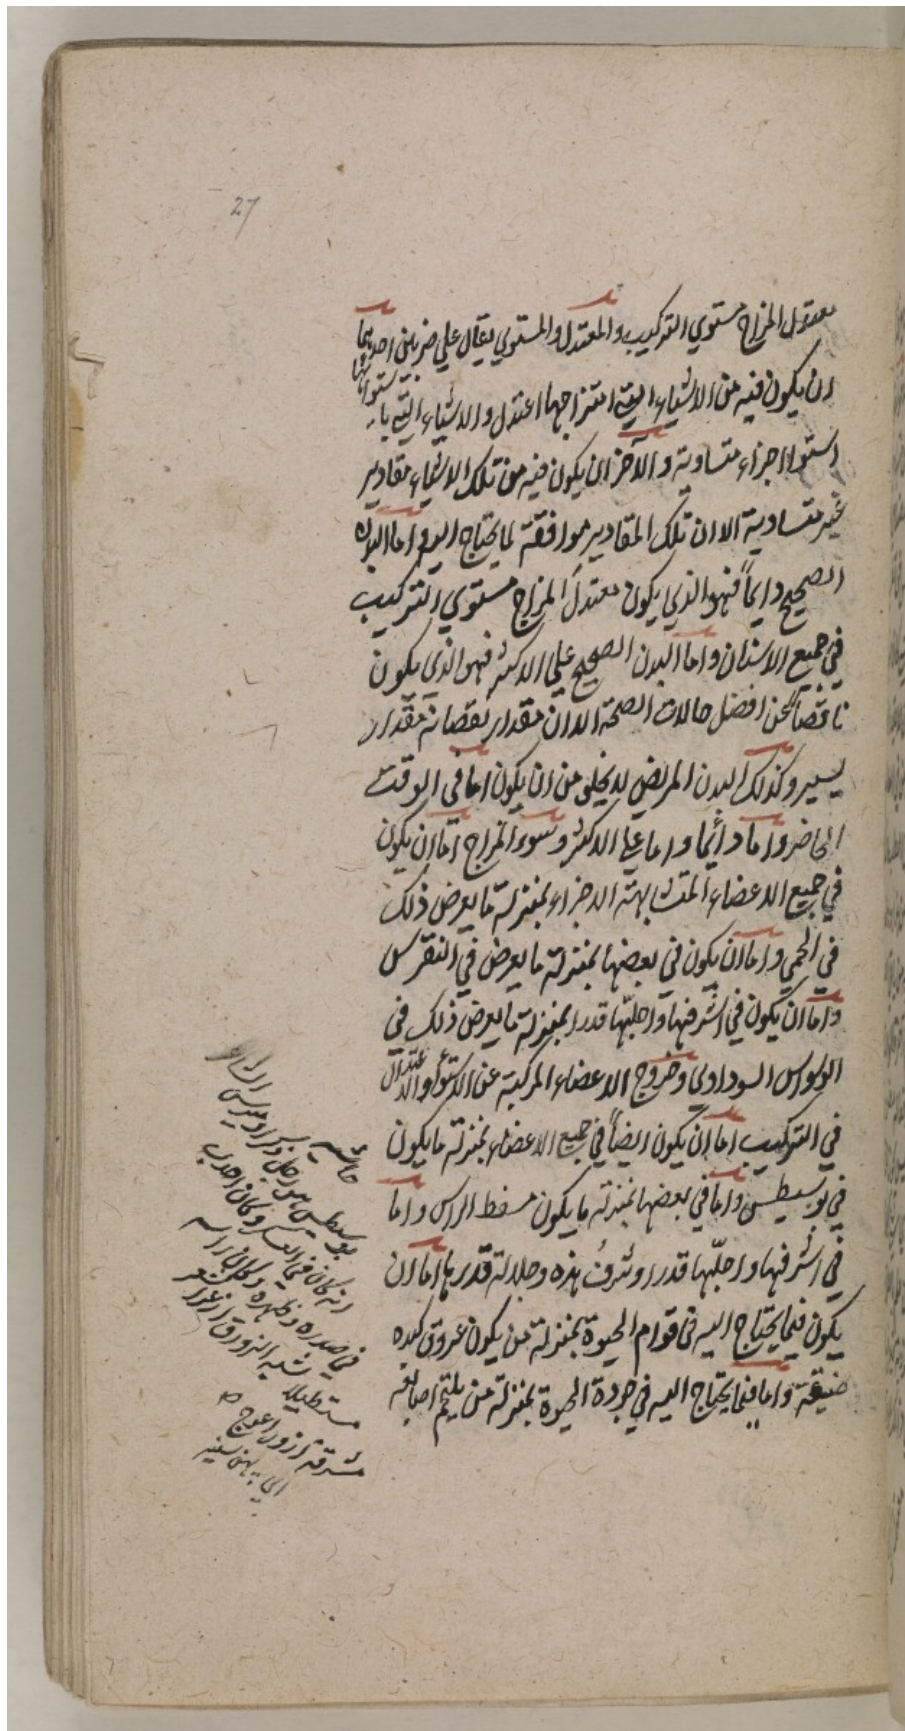 27
معتدل المزاج مستوي التركيب والمعتدل والمستوي يقال علي ضربين احدهما
ان يكون فيه من الاشياء التي امتزاجها اعتدل والاشياء التي باستوائها
استوا اجزاء متساوية والآخر ان يكون فيه من تلك الاشياء مقادير
غير متساوية الا ان تلك المقادير موافقة لما يحتاج اليه واما البدن
الصحيح دايماً فهو الذي يكون معتدل المزاج مستوي التركيب
في جميع الاسنان واما البدن الصحيح علي الاكثر فهو الذي يكون
ناقصاً عن افضل حالات الصحة الا ان مقدار نقصانه مقدار
يسير وكذلك البدن المريض لا يخلو من ان يكون اما في الوقت
الحاضر واما دائما واما علي الاكثر وسوء المزاج اما ان يكون
في جميع الاعضاء المتشابهة الاجزاء بمنزلة ما يعرض ذلك
في الحمي واما ان يكون في بعضها بمنزلة ما يعرض في النقرس
واما ان يكون في اشرفها واجلّها قدرا بمنزلة ما يعرض ذلك في
الوسواس السوداوي وخروج الاعضاء المركبة عن الاستواء والاعتدال
في التركيب اما ان يكون ايضاً في جميع الاعضاء بمنزلة ما يكون
في بوسيطس واما في بعضها بمنزلة ما يكون مسفط الراس واما
في اشرفها واجلّها قدرا وشرف هذه وجلالة قدرها اما ان
يكون فيما يحتاج اليه في قوام الحيوة بمنزلة من يكون عروق كبده
ضيقة واما فيما يحتاج اليه في جودة الحيوة بمنزلة من يلتحم اصابعه
حاشيه
بوسيطس هو رجل ذكر اوميرس الشاعر
انه كان في العسكر وكان احدب
في صدره وظهره وكان راسه
مستطيلا شبه الزورق ازعر الشعر
مشرقه ازور اعوج